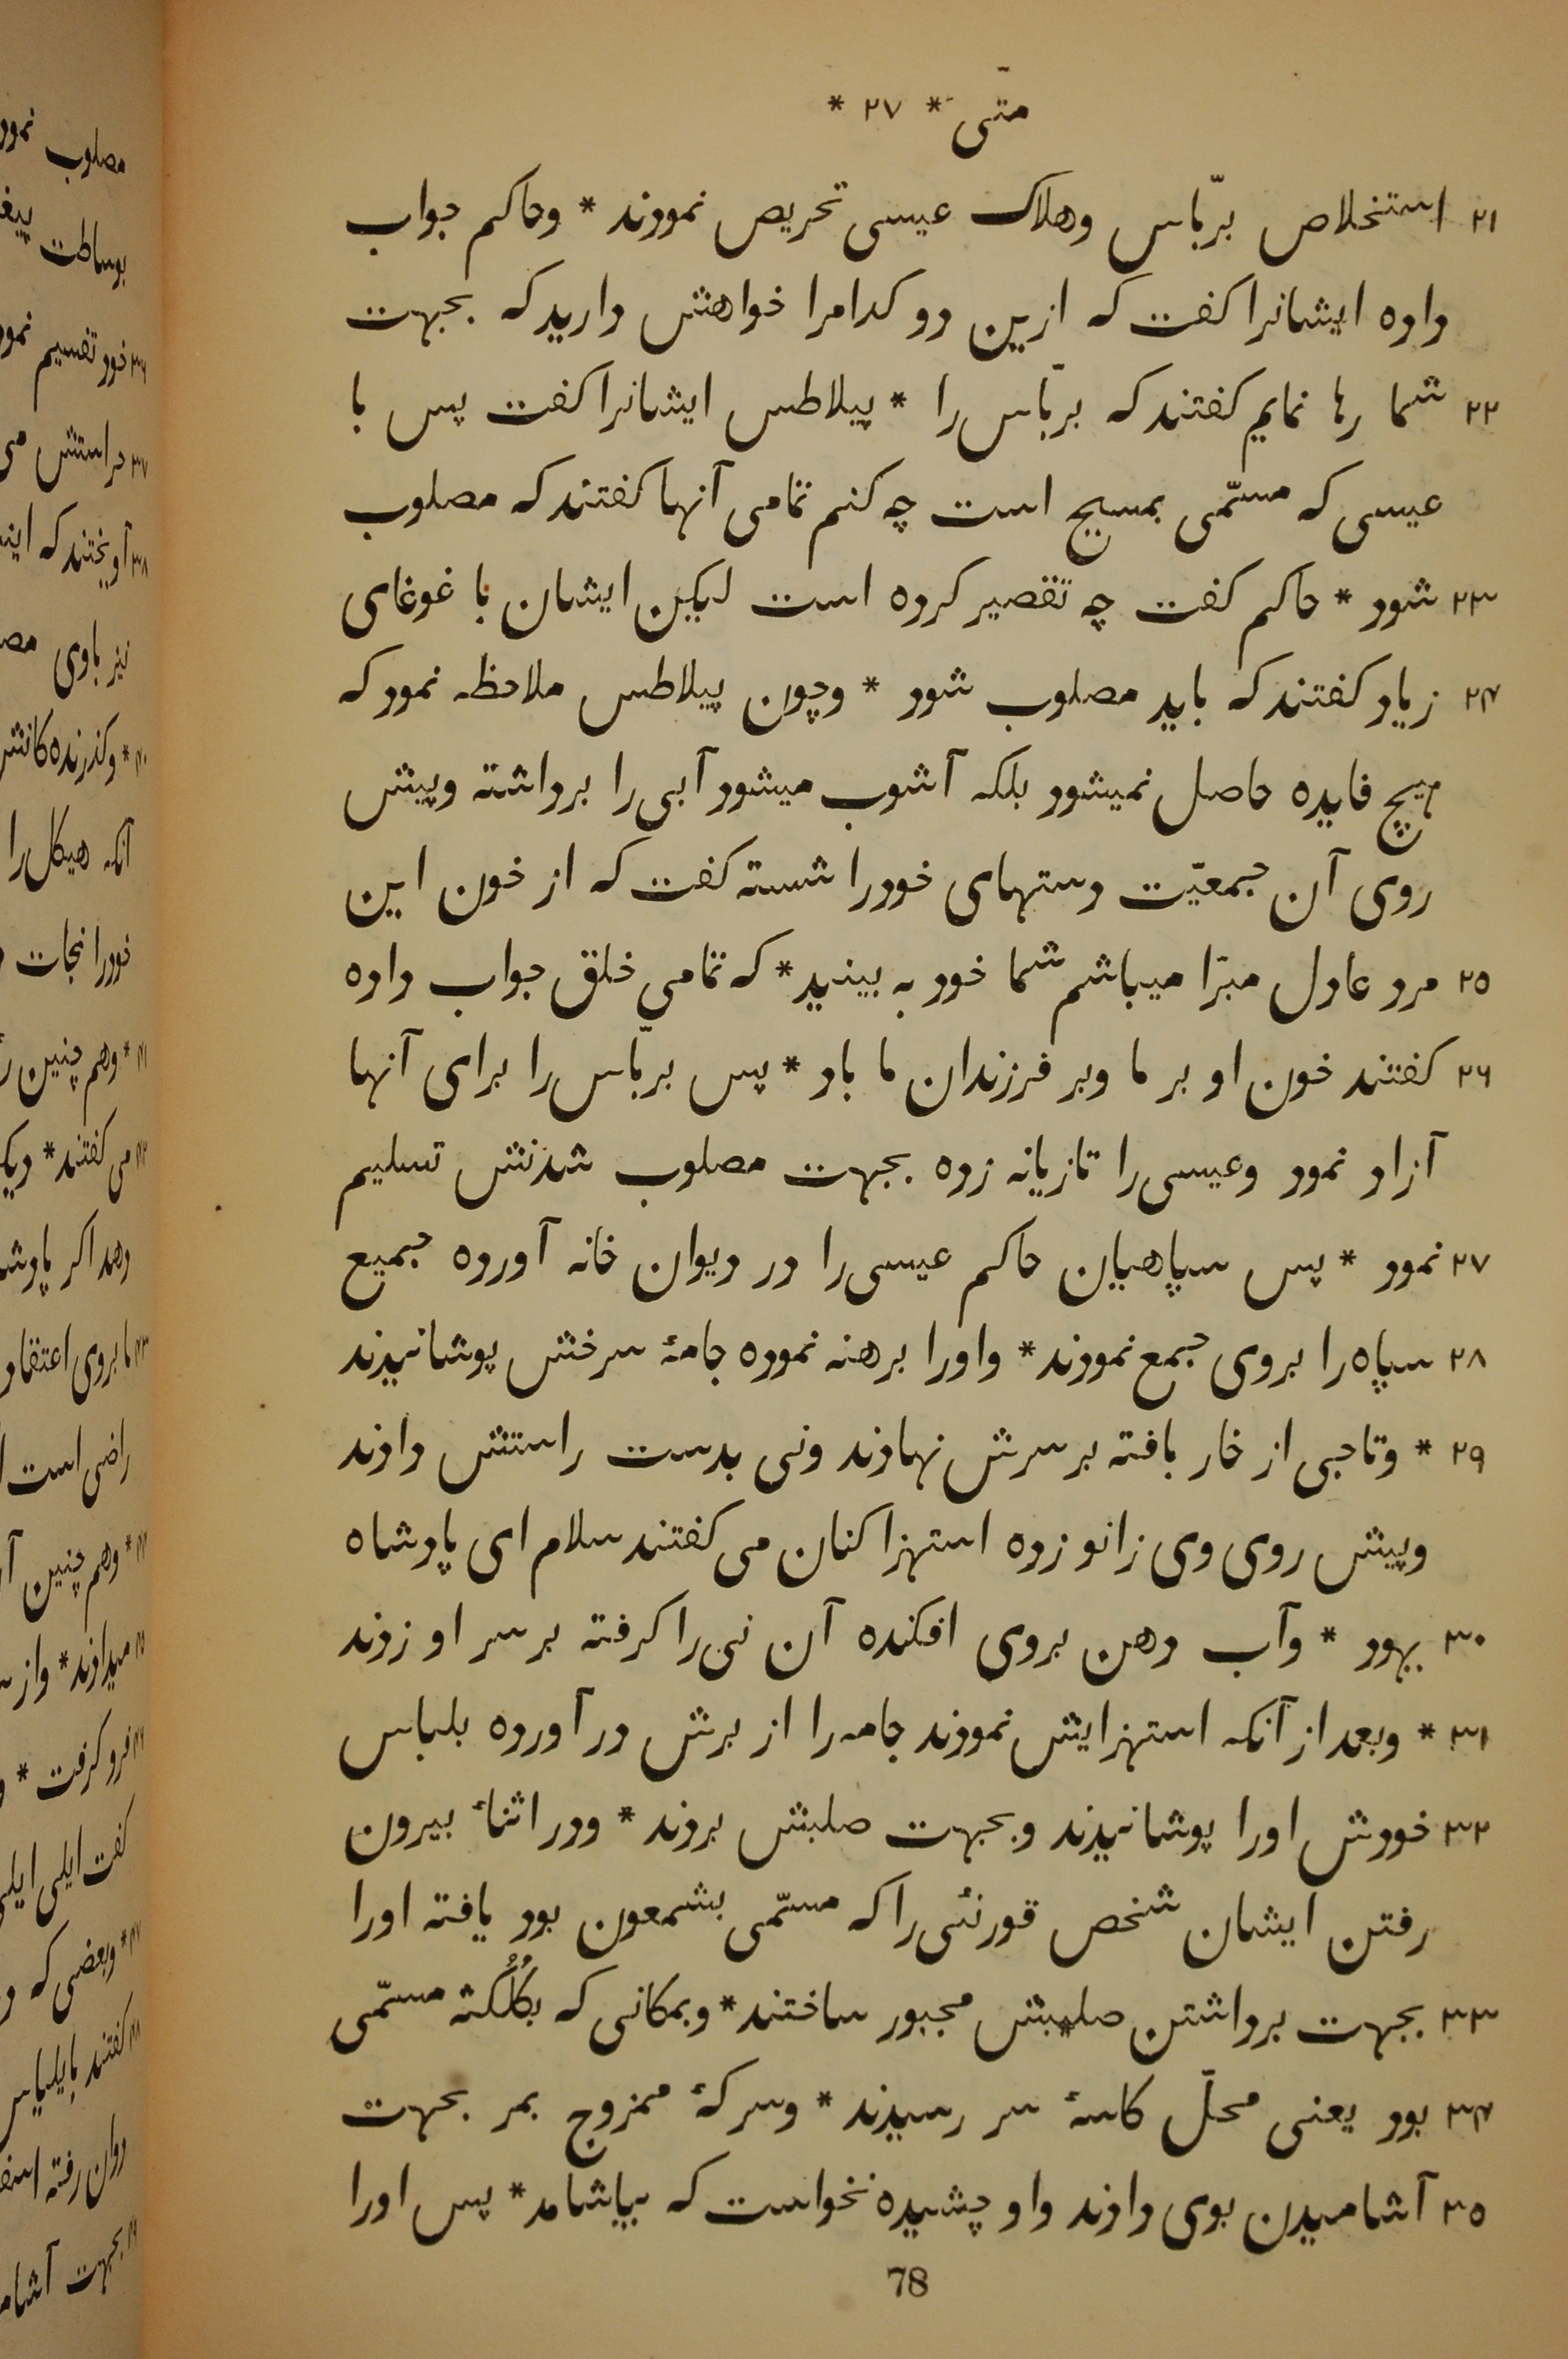 متّی * ۲۷ *
۲۱ استخلاص برّباس وهلاک عیسی تحریص نمودند * وحاکم جواب
داده ایشانرا کفت که ازین دو کدامرا خواهش دارید که بجهت
۲۲ شما رها نمایم کفتند که برّباس را * پیلاطس ایشانرا کفت پس با
عیسی که مسمّی بمسیح است چه کنم تمامی آنها کفتند که مصلوب
۲۳ شود * حاکم کفت چه تقصیر کرده است لیکن ایشان با غوغای
۲۴ زیاد کفتند که باید مصلوب شود * وچون پیلاطس ملاحظه نمود که
هیچ فایده حاصل نمیشود بلکه آشوب میشود آبی را برداشته وپیش
روی آن جمعیّت دستهای خودرا شسته کفت که از خون این
۲۵ مرد عادل مبرّا میباشم شما خود به بینید * که تمامی خلق جواب داده
۲۶ کفتند خون او بر ما وبر فرزندان ما باد * پس برّباس را برای آنها
آزاد نمود وعیسی را تازیانه زده بجهت مصلوب شدنش تسلیم
۲۷ نمود * پس سپاهیان حاکم عیسی را در دیوان خانه آورده جمیع
۲۸ سپاه را بروی جمع نمودند * واورا برهنه نموده جامهٔ سرخش پوشانیدند
۲۹ * وتاجی از خار بافته بر سرش نهادند ونی بدست راستش دادند
وپیش روی وی زانو زده استهزا کنان می کفتند سلام ای پادشاه
۳۰ یهود * وآب دهن بروی افکنده آن نی را کرفته بر سر او زدند
۳۱ * وبعد از آنکه استهزایش نمودند جامه را از برش در آورده بلباس
۳۲ خودش اورا پوشانیدند وبجهت صلبش بردند * ودر اثناٴ بیرون
رفتن ایشان شخص قورنئی را که مسمّی بشمعون بود یافته اورا
۳۳ بجهت برداشتن صلیبش مجبور ساختند * وبمکانی که بکُلْکُته مسمّی
۳۴ بود یعنی محلّ کاسهٔ سر رسیدند * وسرکهٔ ممزوج بمر بجهت
۳۵ آشامیدن بوی دادند واو چشیده نخواست که بیاشامد * پس اورا
78